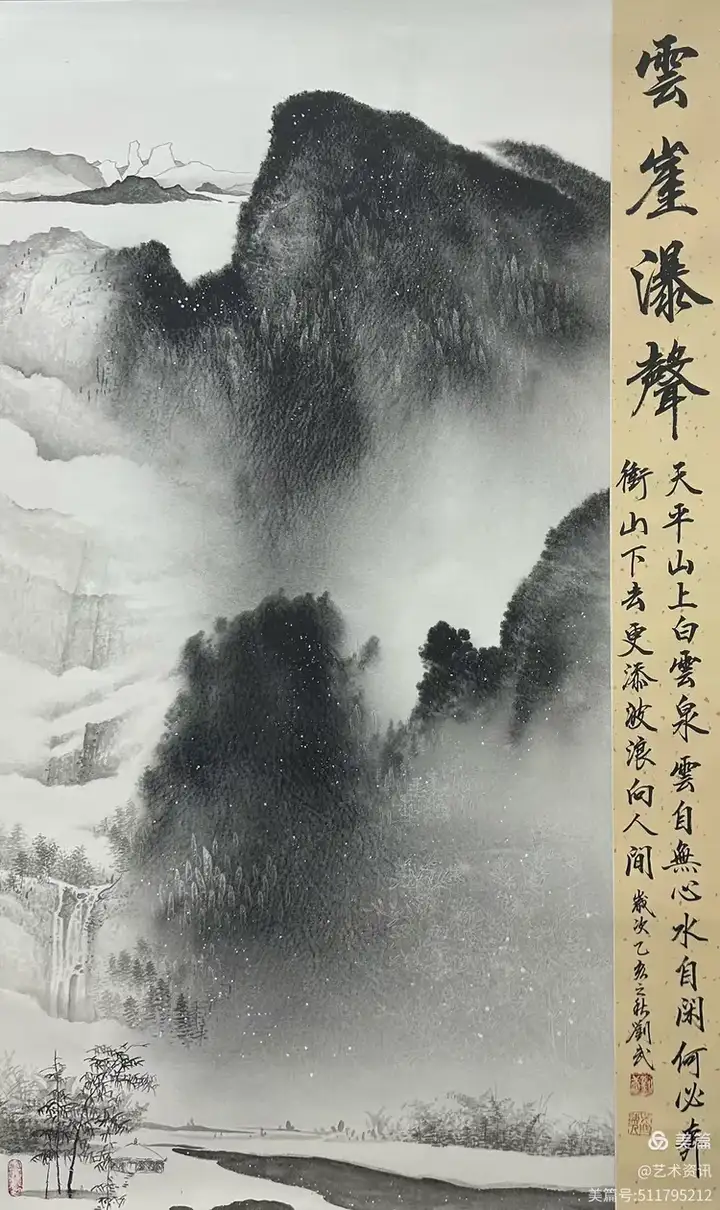 雲崖瀑聲
天平山上白雲泉雲自無心水自閑何必奔
衝山下去更添波浪向人間歲次乙亥之秋劉武
美篇
@艺术资讯
美篇号:511795212